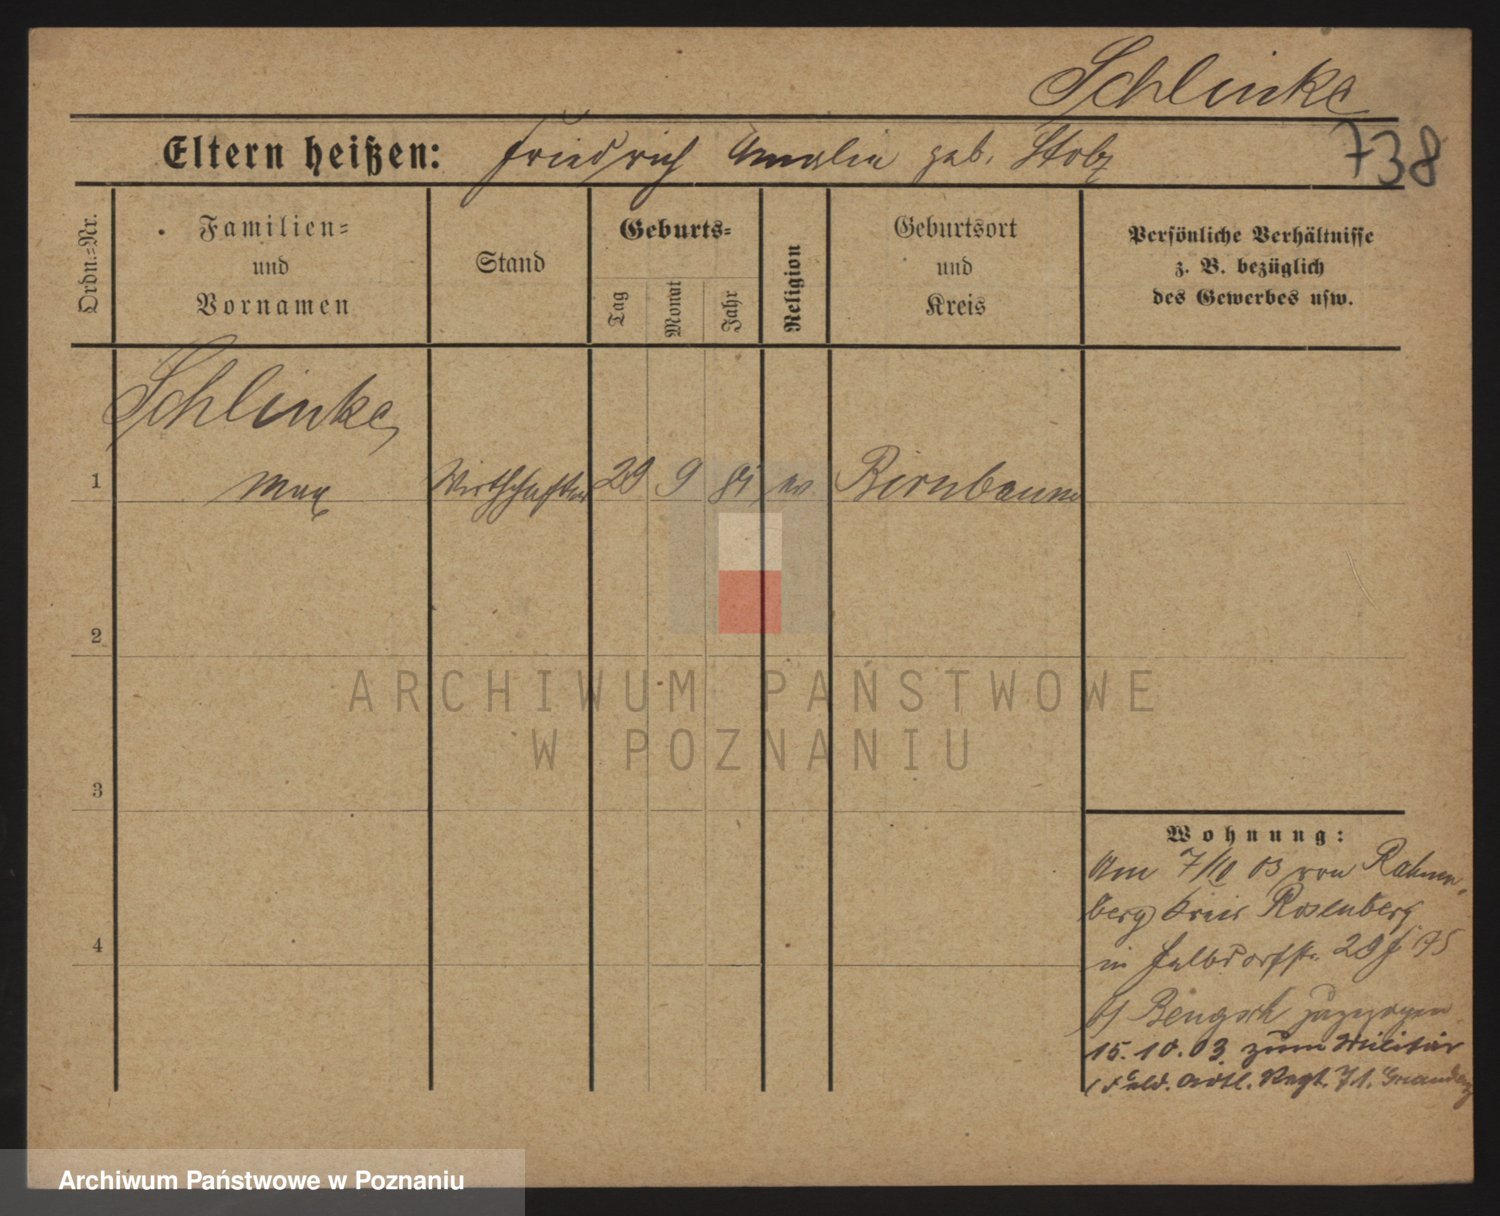 Schlinke
738
Eltern heißen: Friedrich Amalie geb. Stolz
Ordn.=Nr.
Familien=
und
Vornamen
Stand
Geburts=
Tag
Monat
Jahr
Religion
Geburtsort
und
Kreis
Persönliche Verhältnisse
z. B. bezüglich
des Gewerbes usw.
Schlinke,
1 Max 29 9 ev. Birnbaum
2
ARCHIWUM PAŃSTWOWE
W POZNANIU
3
4
Wohnung:
Am 7/10 03 von
berg Kreis Rosenberg
in
b/ Bengsch zugezogen
15.10.03 zum Militär
(Feld. Artl. Regt. 71.
Archiwum Państwowe w Poznaniu